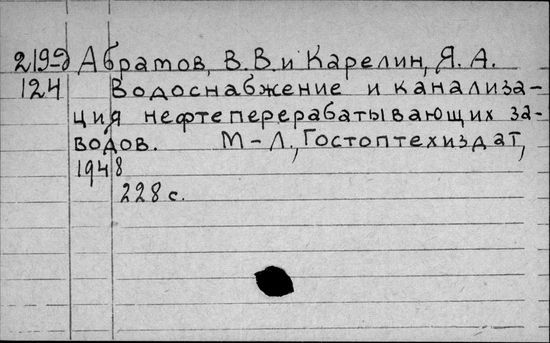 219-д Абратов, В.В. и Карелин, Я. А.
124 Водоснабжение и канализа-
ция нефтеперерабатывающих за-
водов. М-Л., Гостоптехиздат,
1948
228 с.